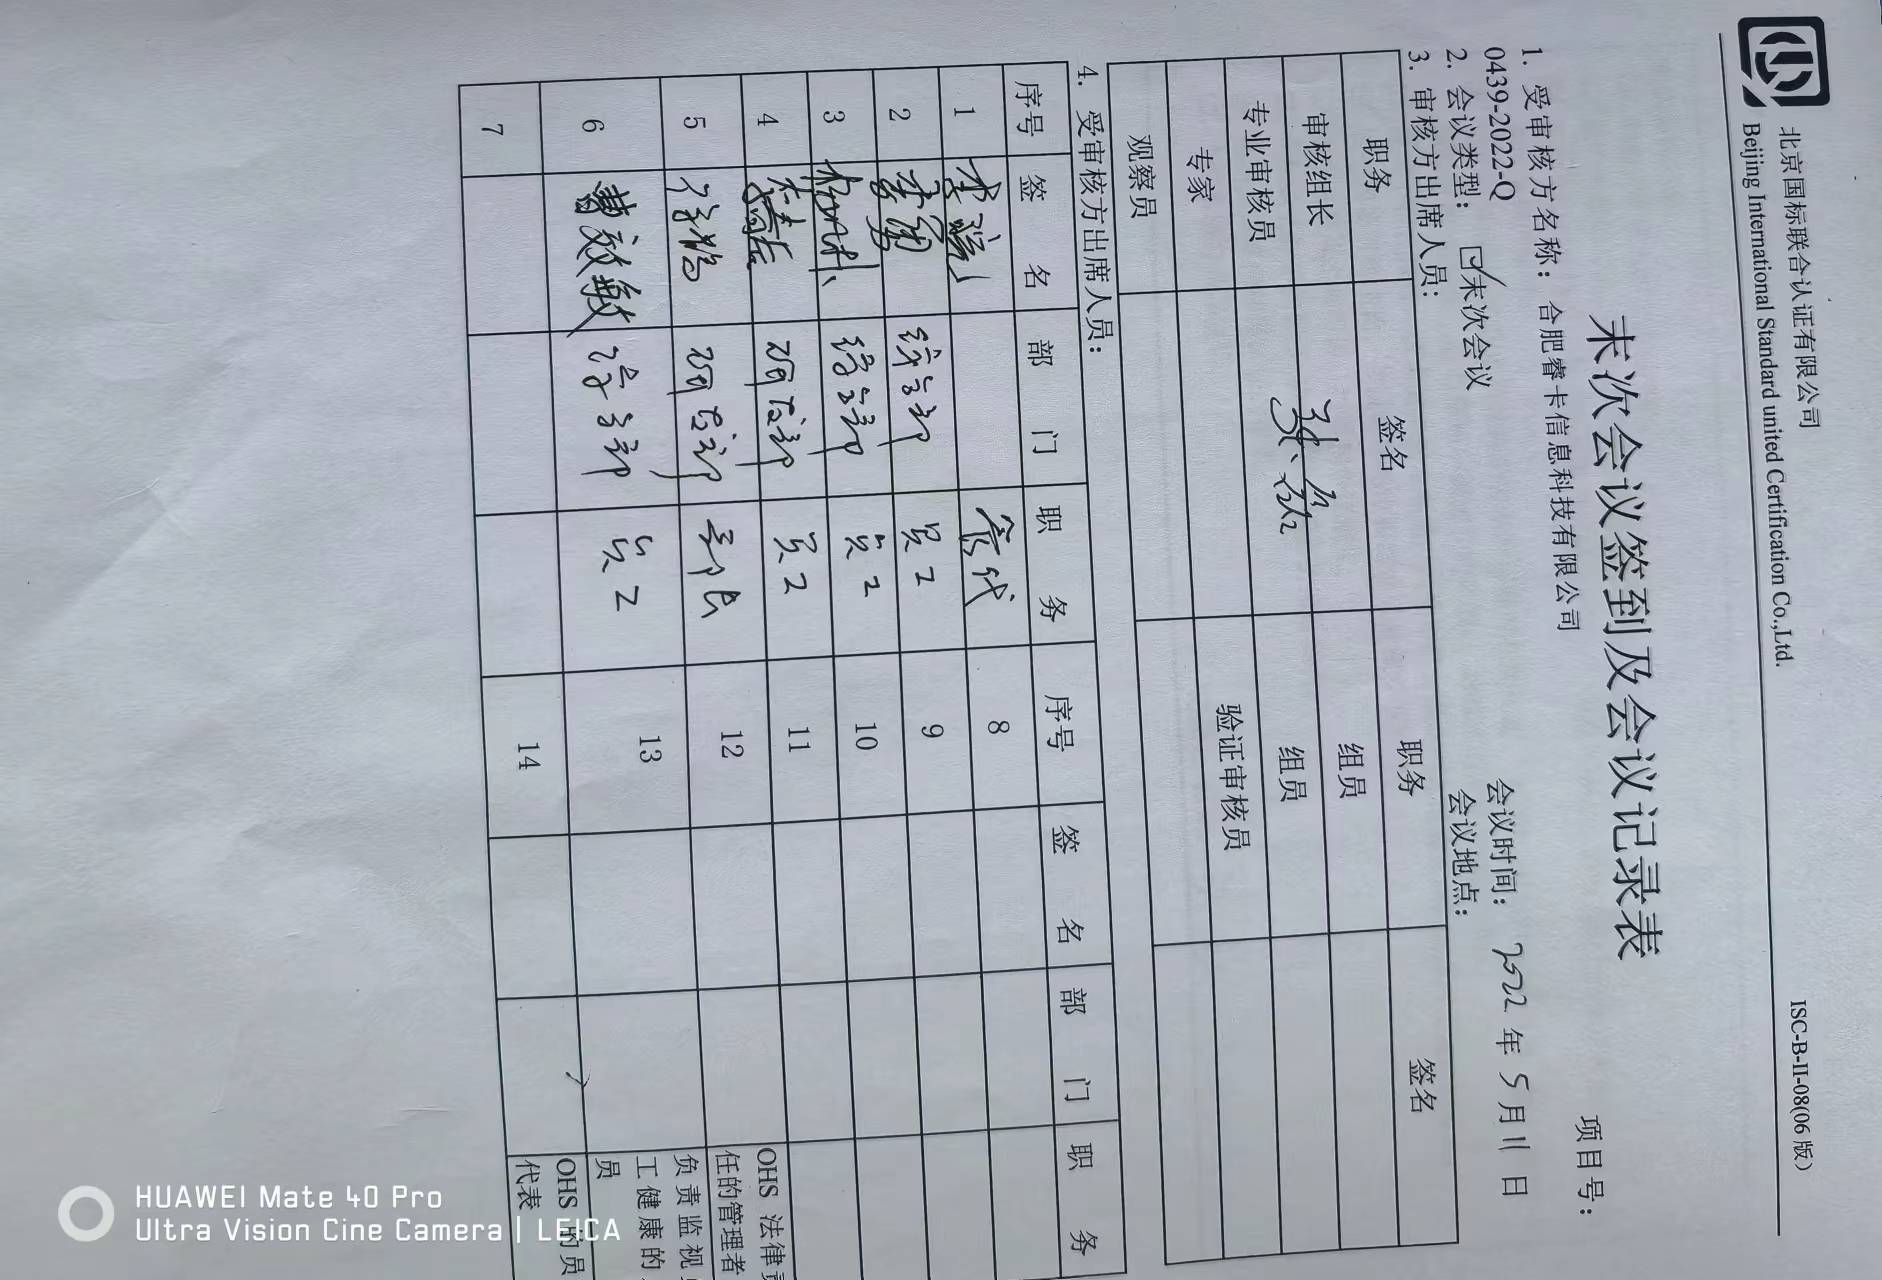 北京国标联合认证有限公司
Beijing International Standard united Certification Co.,Ltd.
ISC-B-II-08(06 版)
末次会议签到及会议记录表
1. 受审核方名称：合肥睿卡信息科技有限公司 项目号：
0439-2022-Q 会议时间：2022 年 5 月 11 日
2. 会议类型：☑末次会议 会议地点：
3. 审核方出席人员：
职务 签名 职务 签名
审核组长 组员
专业审核员 组员
专家 验证审核员
观察员
4. 受审核方出席人员：
序号 签 名 部 门 职 务 序号 签 名 部 门 职 务
1 管代 8
2 综合部 员工 9
3 综合部 员工 10
4 研发部 员工 11
5 研发部 部长 12 OHS 法律
任的管理者
6 综合部 员工 13 负责监视
工健康的
员
7 14 OHS 的员
代表
HUAWEI Mate 40 Pro
Ultra Vision Cine Camera | LEICA